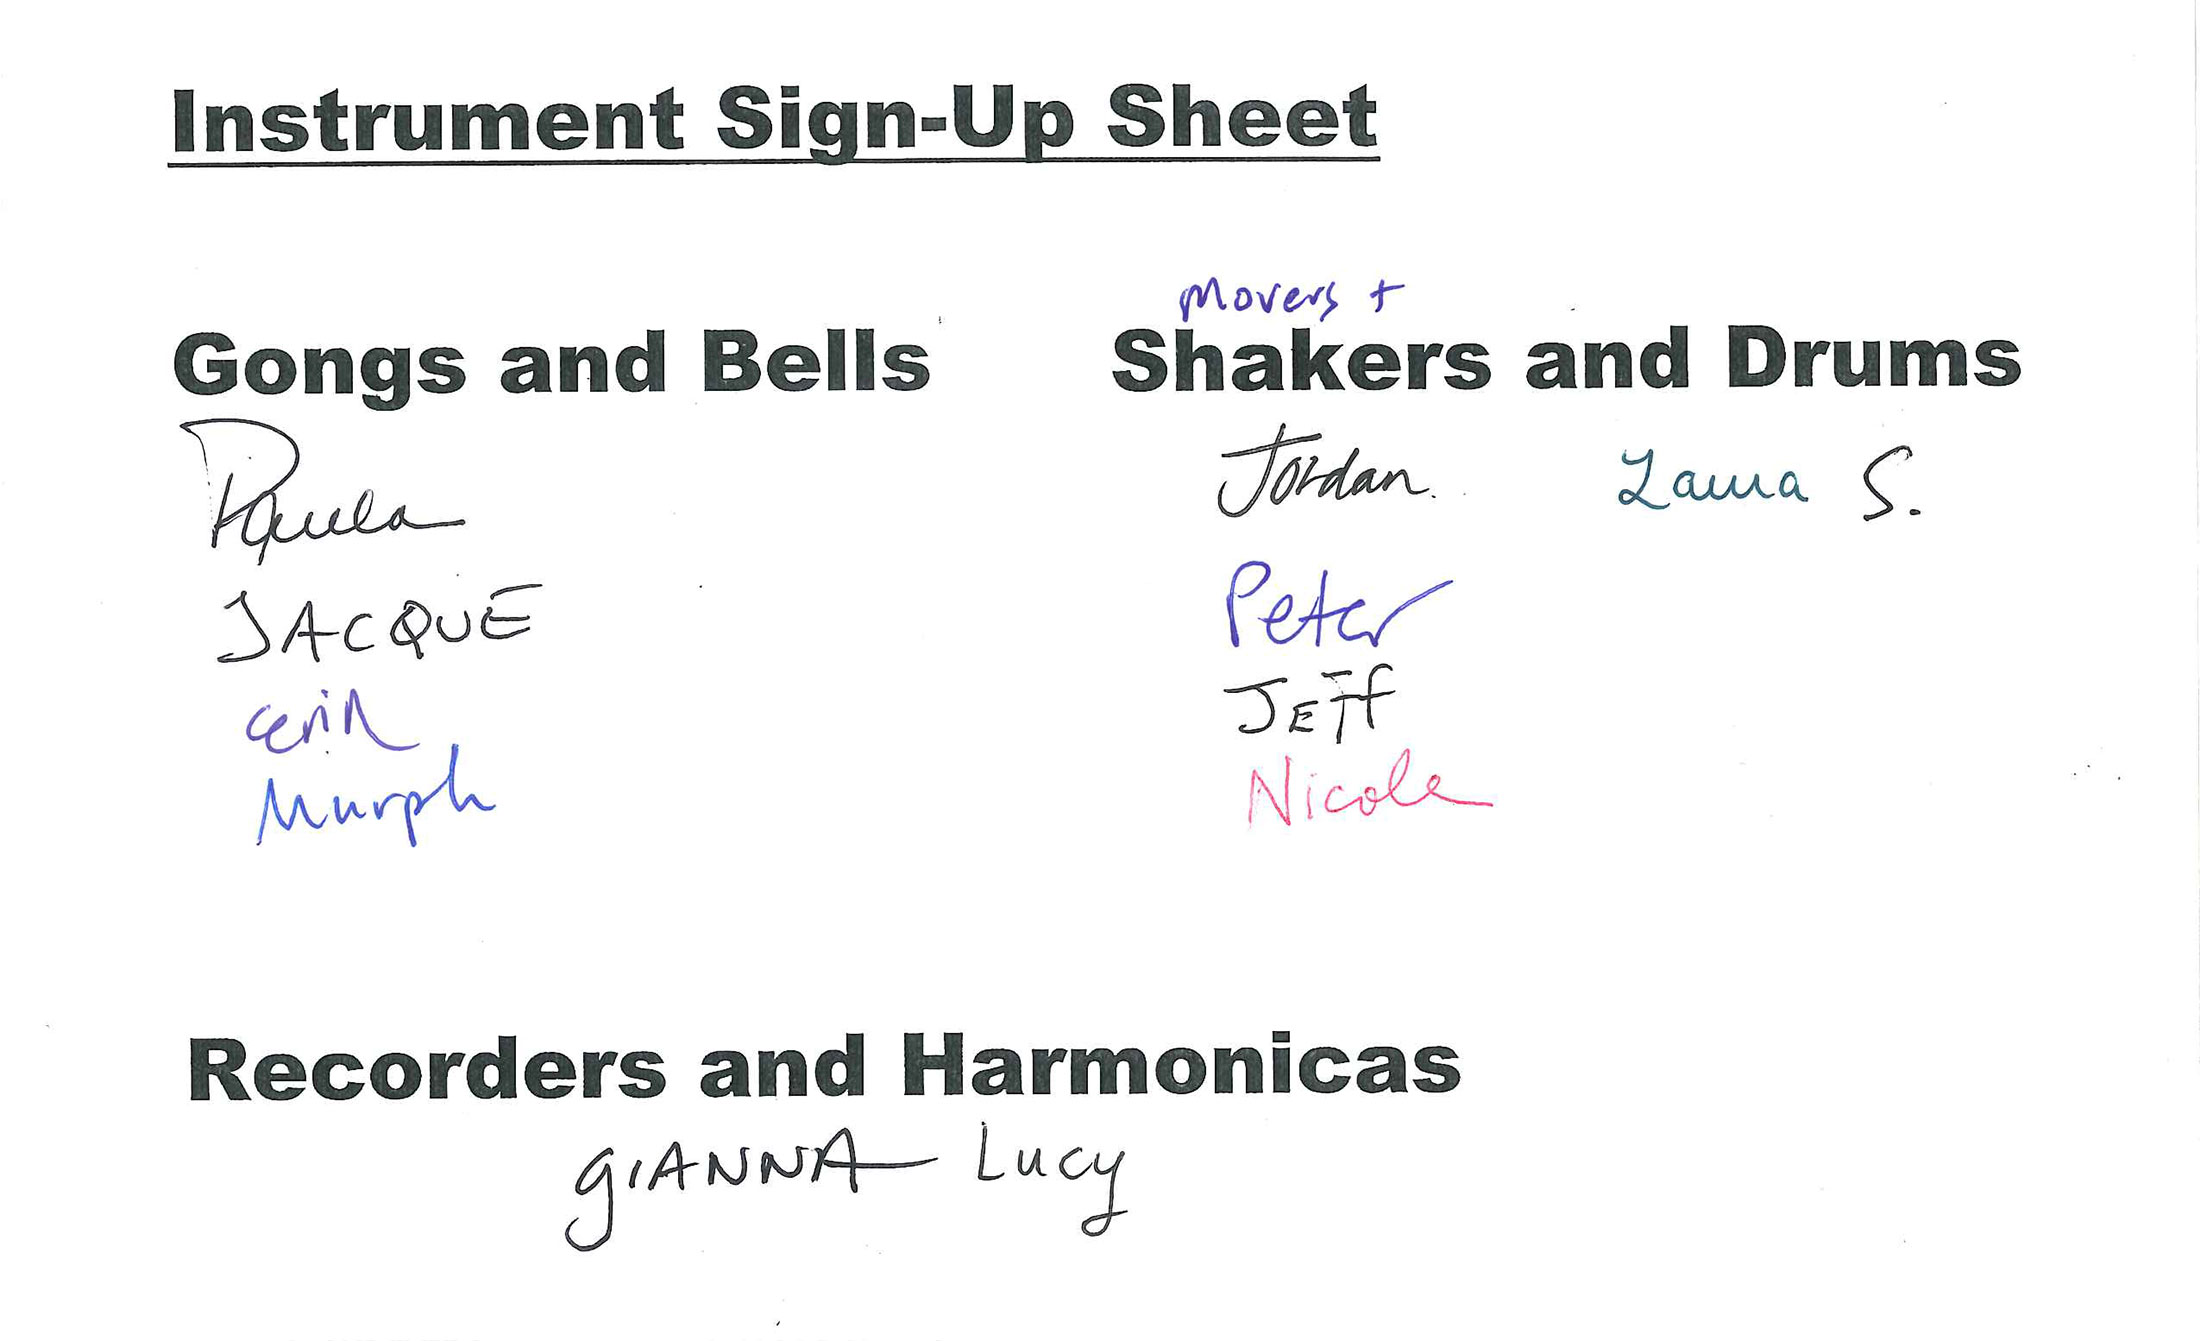 Instrument Sign-Up Sheet
Gongs and Bells
Paula
JACQUE
erin
Murph
Movers +
Shakers and Drums
Jordan. Laura S.
Peter
JEff
Nicole
Recorders and Harmonicas
GIANNA Lucy